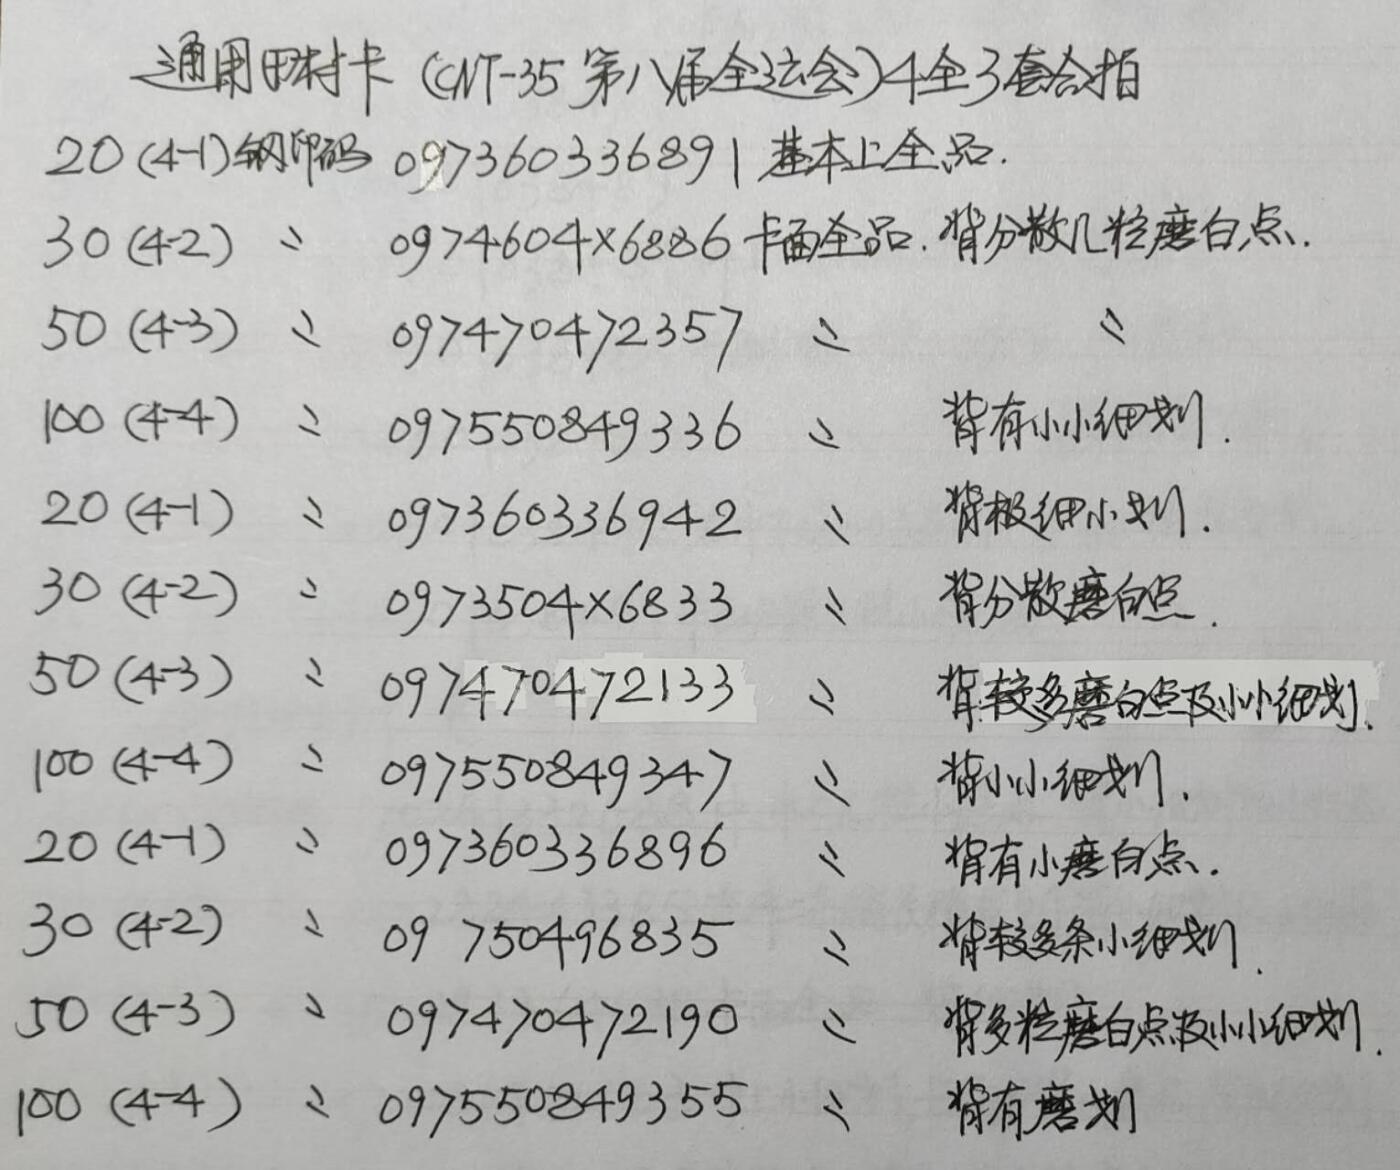 通用田村卡(CNT-35第八届全运会)4全3套合拍
20(4-1)钢印码 097360336891 基本上全品.
30(4-2) 〃 0974604×6886 卡面全品.背分散几粒磨白点.
50(4-3) 〃 097470472357 〃 〃
100(4-4) 〃 097550849336 〃 背有小小细划.
20(4-1) 〃 097360336942 〃 背极细小划.
30(4-2) 〃 0973504×6833 〃 背分散磨白点.
50(4-3) 〃 097470472133 〃 背较多磨白点及小小细划.
100(4-4) 〃 097550849347 〃 背小小细划.
20(4-1) 〃 097360336896 〃 背有小磨白点.
30(4-2) 〃 09 750496835 〃 背较多条小细划.
50(4-3) 〃 097470472190 〃 背多粒磨白点及小小细划.
100(4-4) 〃 097550849355 〃 背有磨划